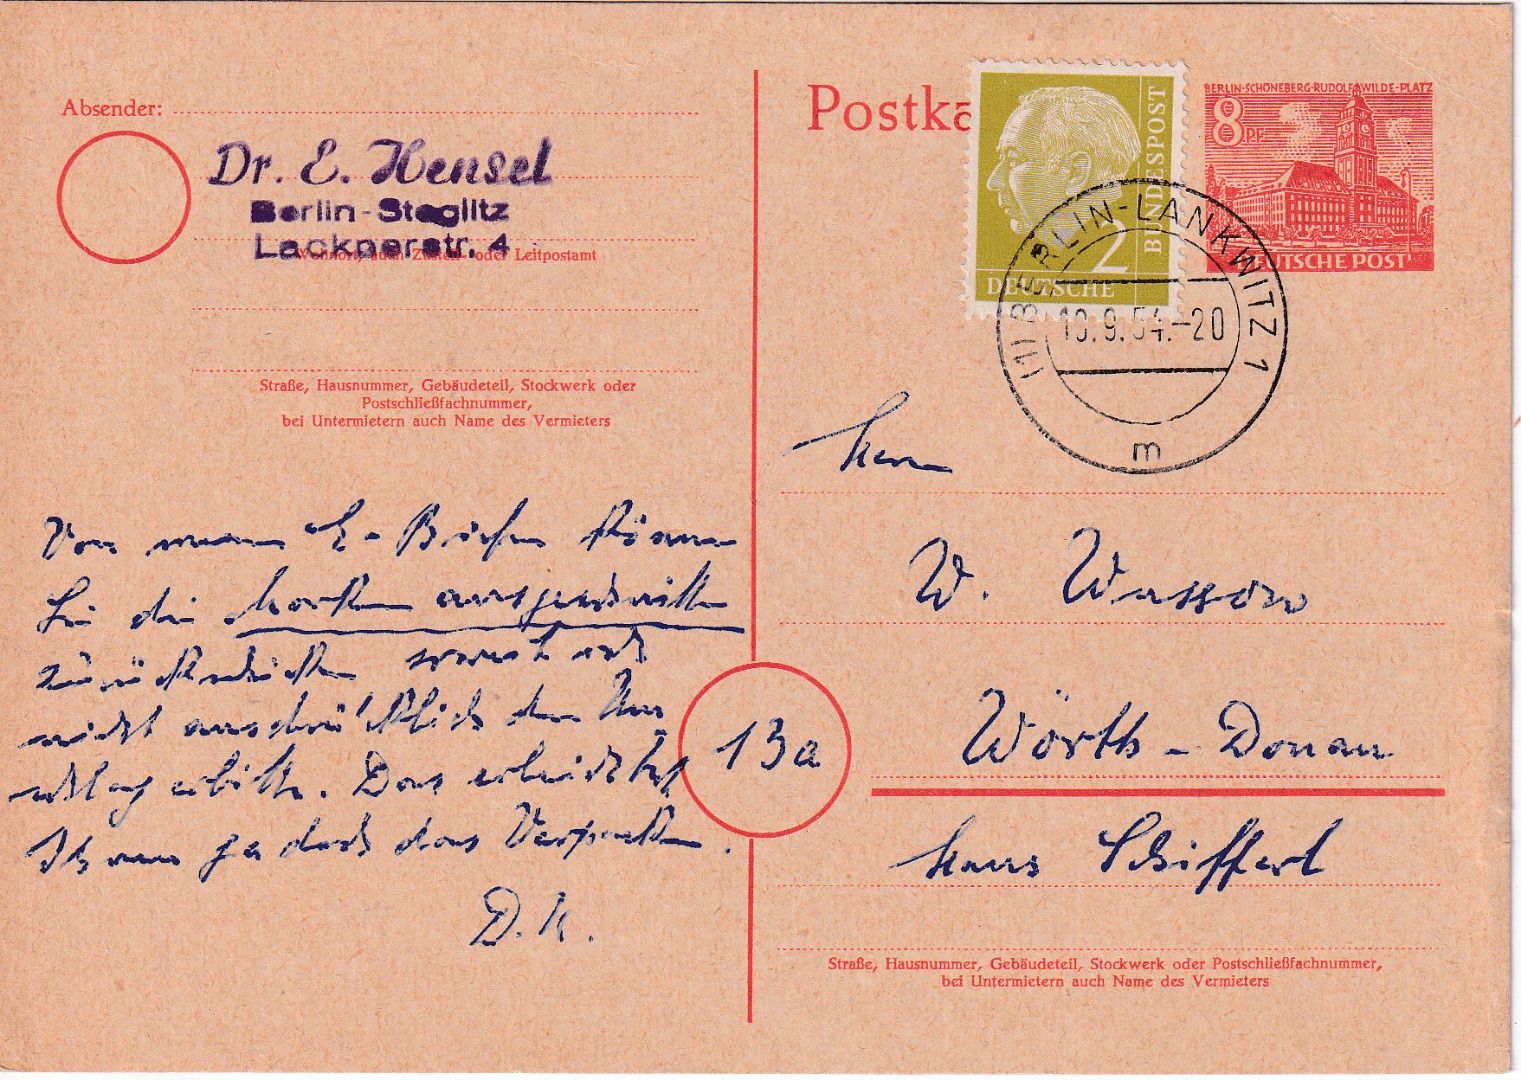 Absender:
Dr. E. Hensel
Berlin-Steglitz
Lacknerstr. 4
Wohnort, auch Zustell- oder Leitpostamt
Straße, Hausnummer, Gebäudeteil, Stockwerk oder
Postschließfachnummer,
bei Untermietern auch Name des Vermieters
Von meinen E-Briefen können
Sie die Marken ausgeschnitten
zurückschicken soweit ich
nicht ausdrücklich den Um
schlag erbitte. Das erleichtert
Ihnen ja doch das Verpacken.
D. H.
Postka
BUNDESPOST
2
DEUTSCHE
BERLIN-SCHÖNEBERG·RUDOLF-WILDE-PLATZ
8 PF
DEUTSCHE POST
(1) BERLIN-LANKWITZ 1
10.9.54.-20
m
Herrn
W. Wassow
13a
Wörth-Donau
Haus Schiffert
Straße, Hausnummer, Gebäudeteil, Stockwerk oder Postschließfachnummer,
bei Untermietern auch Name des Vermieters